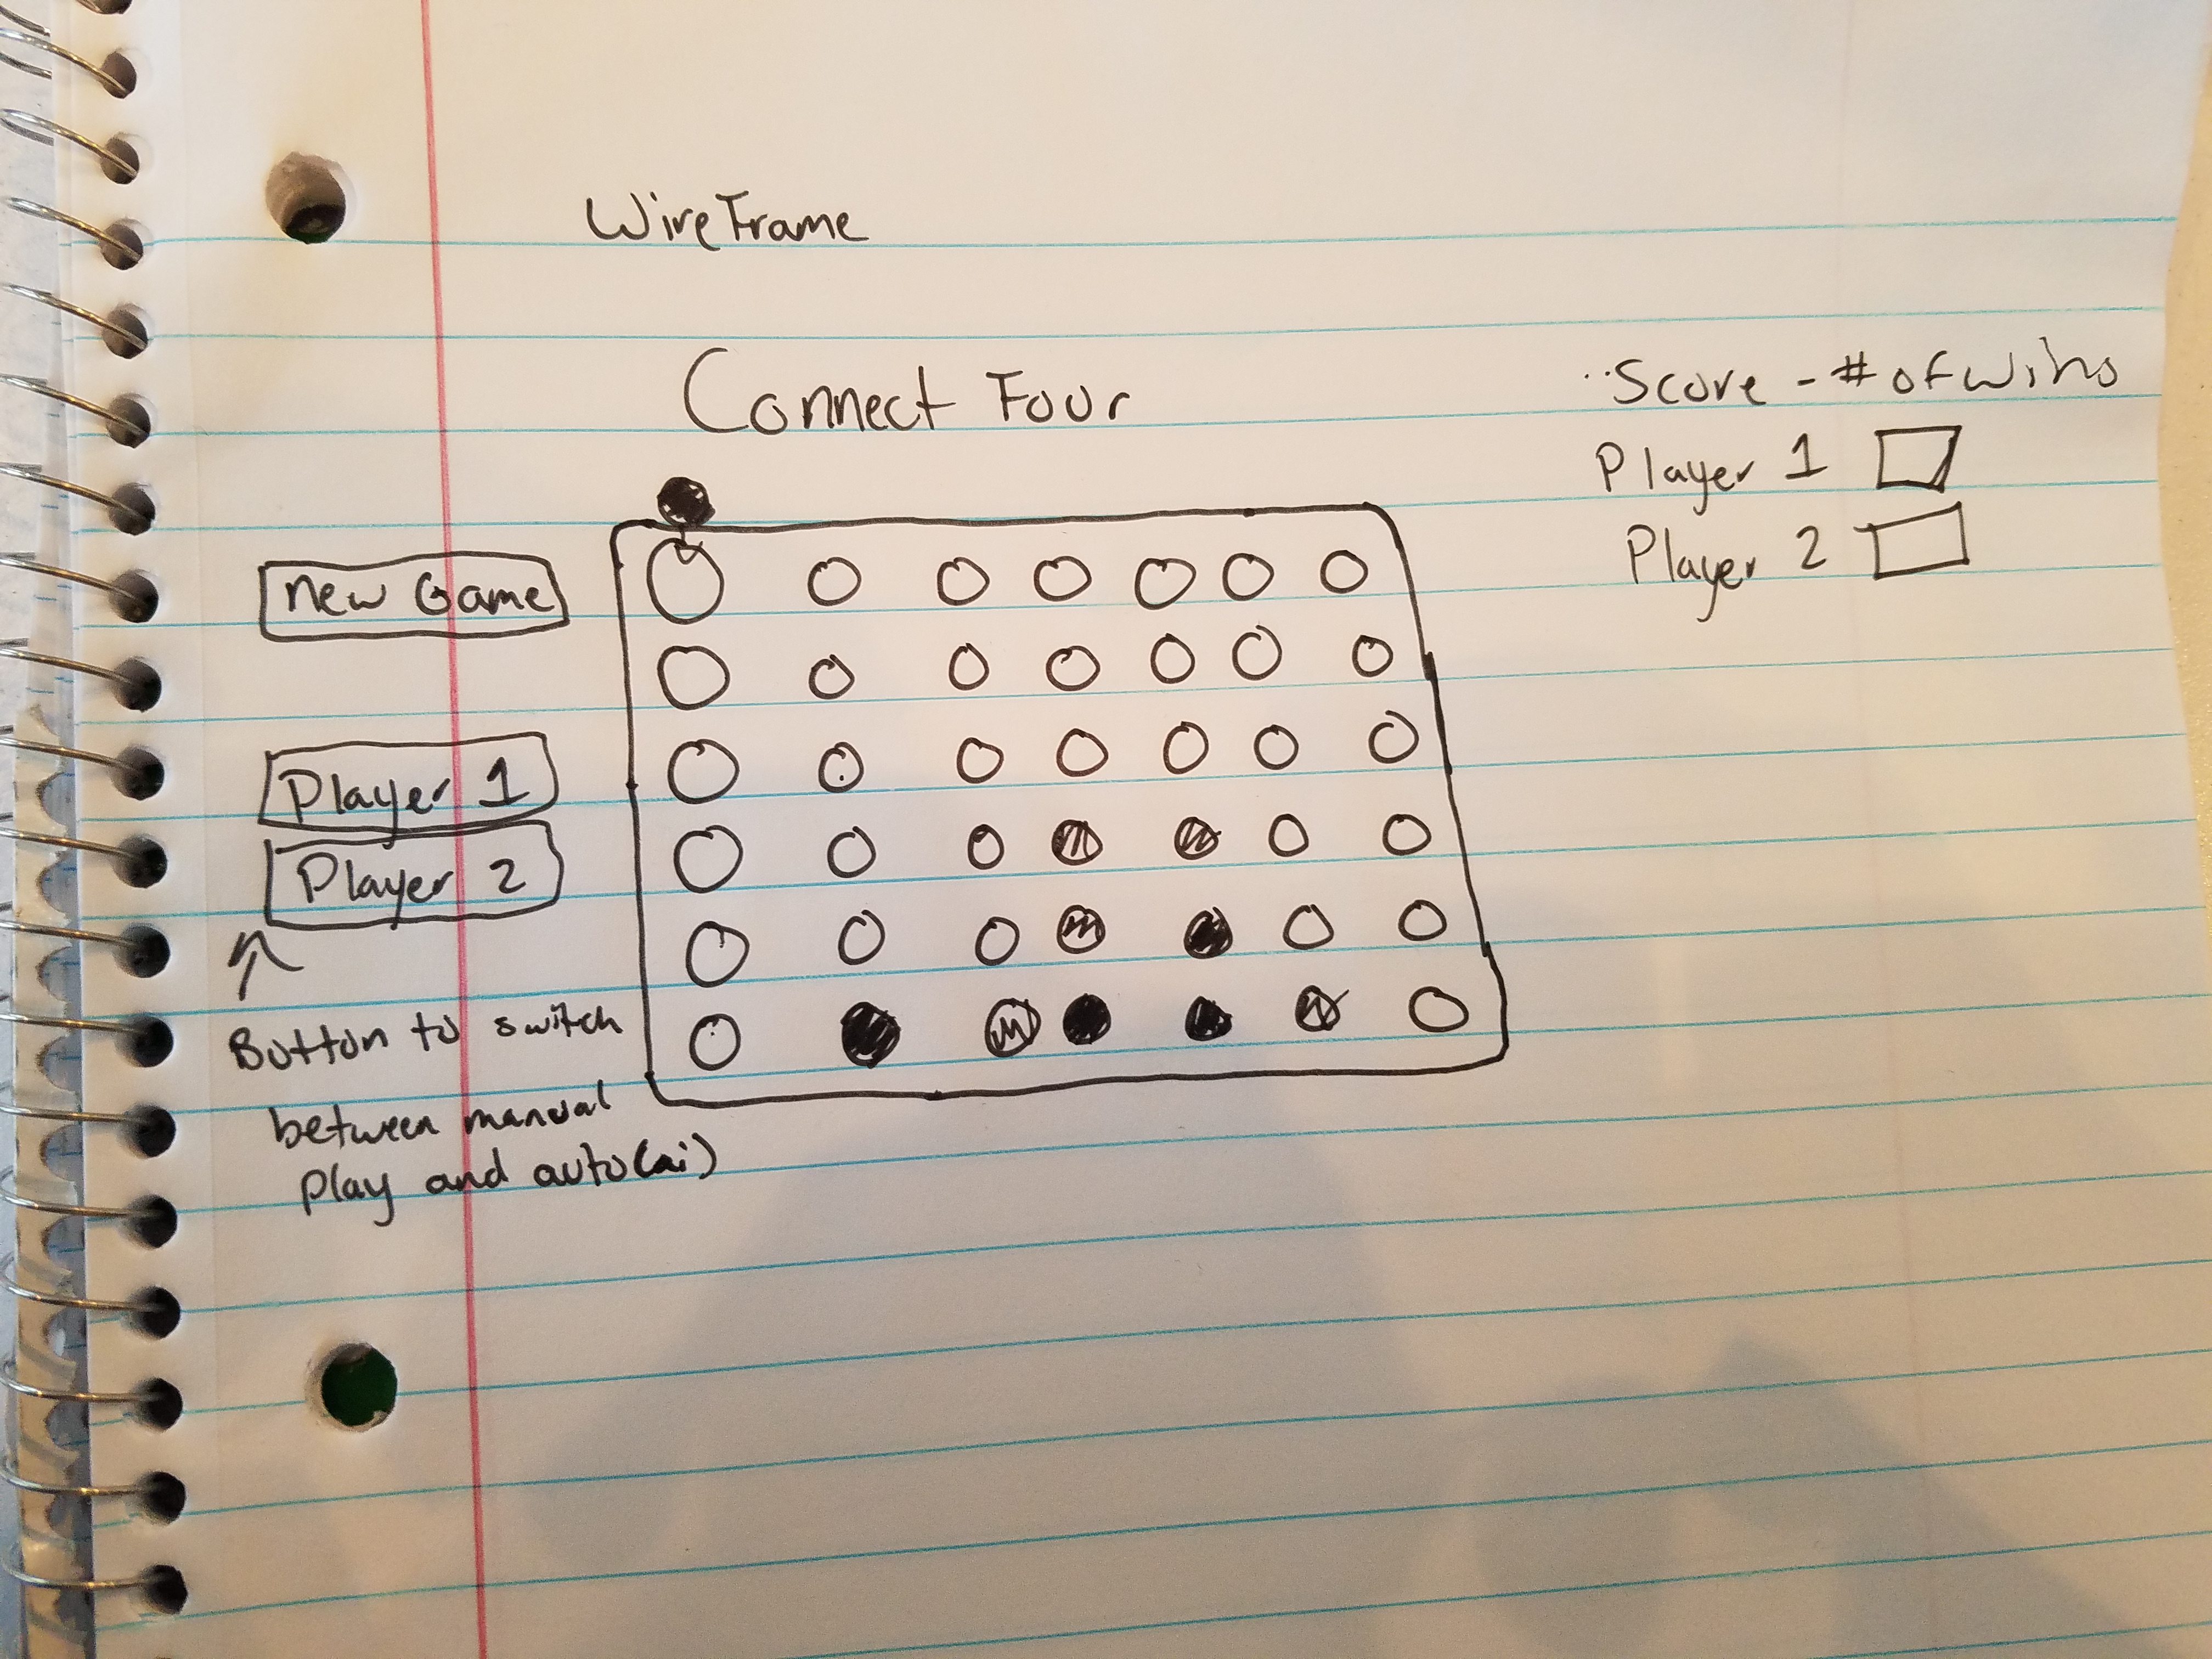 WireFrame
Connect Four
Score - # of wins
Player 1
Player 2
new Game
Player 1
Player 2
Button to switch
between manual
play and auto(ai)